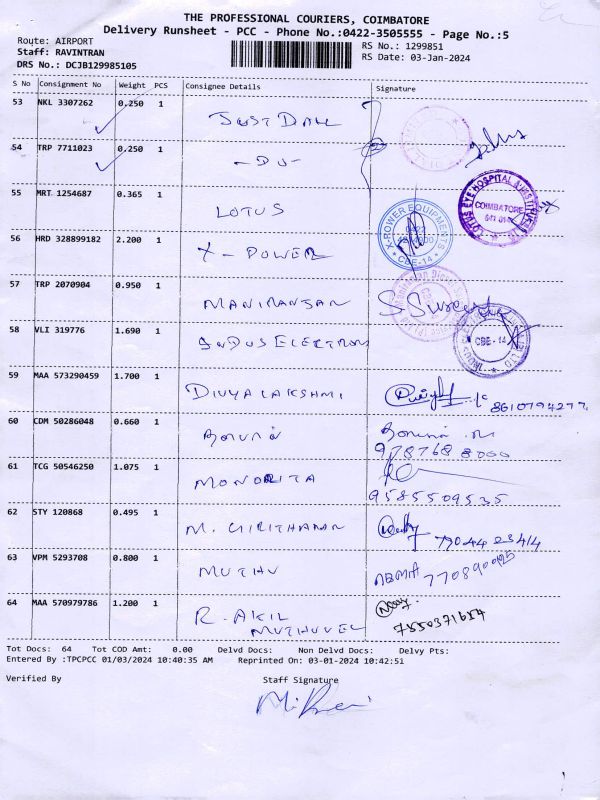 THE PROFESSIONAL COURIERS, COIMBATORE
Delivery Runsheet - PCC - Phone No.:0422-3505555 - Page No.:5
Route: AIRPORT
Staff: RAVINTRAN
DRS No.: DCJB129985105
RS No.: 1299851
RS Date: 03-Jan-2024
S No Consignment No Weight PCS Consignee Details Signature
53 NKL 3307262 0.250 1 JUST DIAL
54 TRP 7711023 0.250 1 - DO -
55 MRT 1254687 0.365 1 LOTUS
LOTUS EYE HOSPITAL & INSTITUTE
COIMBATORE
56 HRD 328899182 2.200 1 X - POWER
X-POWER EQUIPMENTS
CBE-14
57 TRP 2070904 0.950 1 MANIRANJAN S. Suresh
58 VLI 319776 1.690 1 INDUS ELECTRON
CBE - 14
59 MAA 573290459 1.700 1 DIVYA LAKSHMI 8610794277
60 CDM 50286048 0.660 1 9787688000
61 TCG 50546250 1.075 1 MONORITA 9585509535
62 STY 120868 0.495 1 M. GIRITHARAN 79044 23414
63 VPM 5293708 0.800 1 MUTHU
64 MAA 570979786 1.200 1 R. AKIL
MUTHUVEL
Tot Docs: 64 Tot COD Amt: 0.00 Delvd Docs: Non Delvd Docs: Delvy Pts:
Entered By :TPCPCC 01/03/2024 10:40:35 AM Reprinted On: 03-01-2024 10:42:51
Verified By Staff Signature